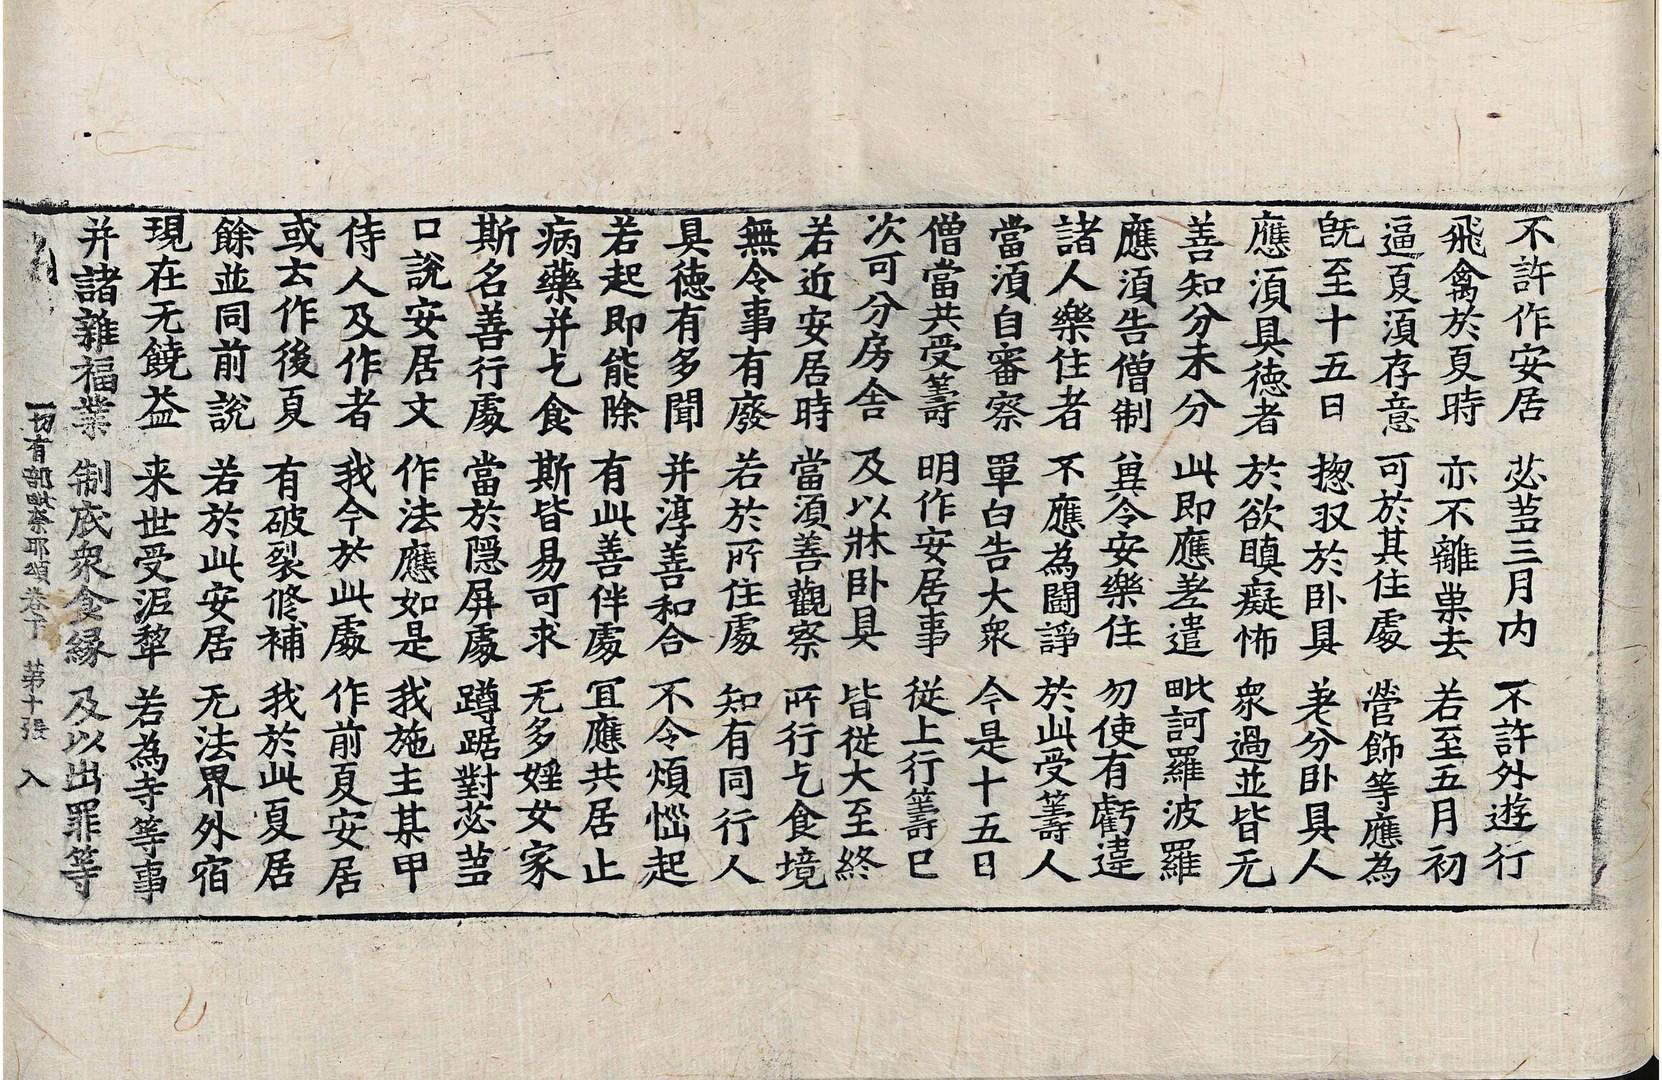 不許作安居 苾芻三月内 不許外遊行
飛禽於夏時 亦不離巢去 若至五月初
逼夏湏存意 可於其住處 營飾等應為
旣至十五日 揔収於卧具 差分卧具人
應湏具徳者 於欲瞋癡怖 衆過並皆无
善知分未分 此即應差遣 毗訶羅波羅
應湏告僧制 兾令安樂住 勿使有虧違
諸人樂住者 不應為闘諍 於此受籌人
當湏自審察 單白告大衆 今是十五日
僧當共受籌 明作安居事 從上行籌已
次可分房舍 及以牀卧具 皆從大至終
若近安居時 當湏善觀察 所行乞食境
無令事有廢 若於所住處 知有同行人
具徳有多聞 并淳善和合 不令煩惱起
若起即能除 有此善伴處 冝應共居止
病藥并乞食 斯皆易可求 无多婬女家
斯名善行處 當於隐屏處 蹲踞對苾芻
口說安居文 作法應如是 我施主某甲
侍人及作者 我今於此處 作前夏安居
或去作後夏 有破裂修補 我於此夏居
餘並同前說 若於此安居 无法界外宿
現在无饒益 来世受泥犂 若為寺等事
并諸雜福業 制底衆食縁 及以出罪等
一切有部毗奈耶頌卷下 苐十張 入